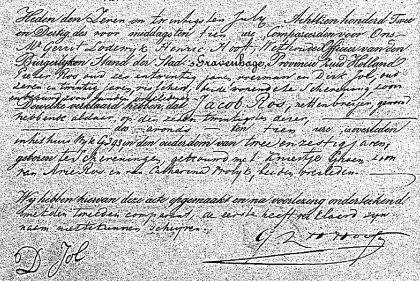 Heden den Zeven en twintigsten July Achttienhonderd Twee
en Dertig des voor middagsten tien ure Compareerden voor Ons
Mr Gerrit Lodewyk Henric Hooft, Wethouder Officier van den
Burgerlyken Stand der Stad 's Gravenhage, Provincie Zuid Holland
Pieter Roos oud zes en twintig jaren, voerman en Dirk Jol, oud
zeven en twintig jaren, visscher, beide wonende te Scheveningen zoon
Dewelke verklaard hebben, dat Jacob Roos, nettenbreijer, gewoond
hebbende aldaar, op den zes en twintigsten dezer,
des avonds ten tien ure, is overleden
in het huis Wyk G 93 in den ouderdom van twee en zestig jaren,
geboren te Scheveningen, gehuwd met Kniertje Spaan zoon
van Arie Roos en van Catharina, beiden overleden.
Wy hebben hiervan deze acte opgemaakt en na voorlezing onderteekend
met den tweeden comparant, de eerste heeft verklaard zyn
naam niet te kunnen schryven.
G L H Hooft
D Jol